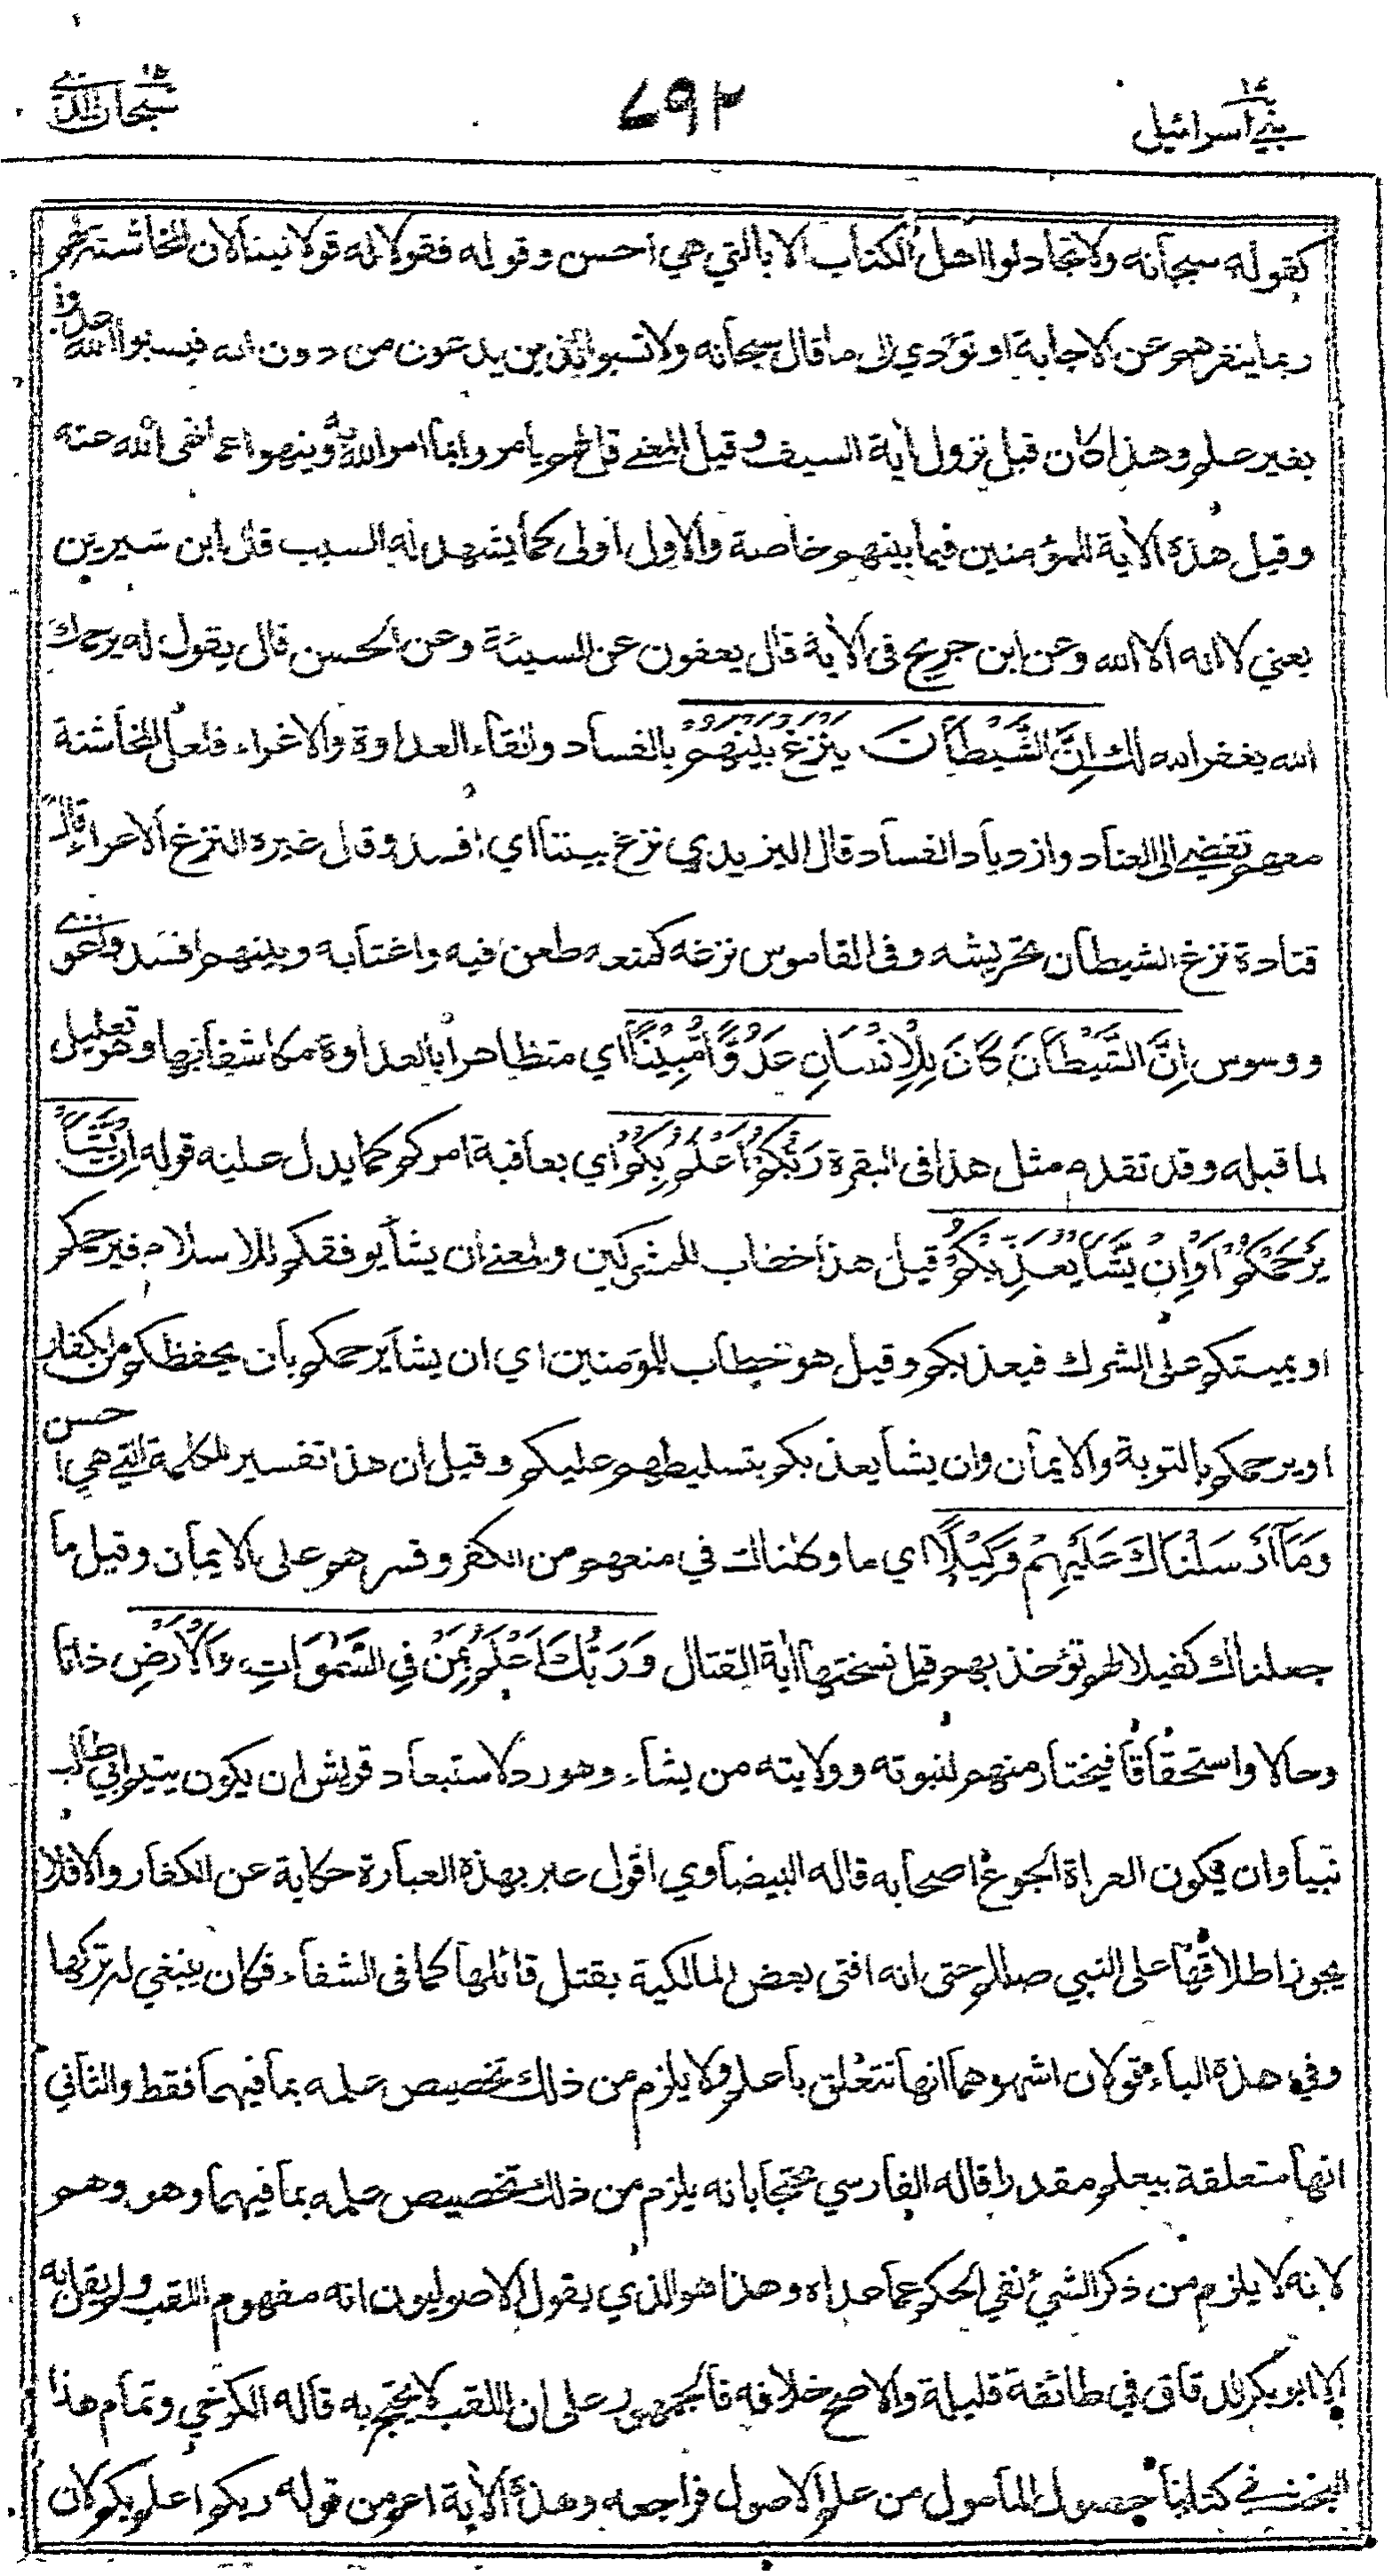 بني اسرائيل ١٧
٦٩٢
سبحان الذي ١٥
كقوله سبحانه ولا تجادلوا اهل الكتاب الا بالتي هي احسن وقوله فقولا له قولا لينا لان المخاشنة لهم
ربما ينفرهم عن الاجابة او تؤدي الى ما قال سبحانه ولا تسبوا الذين يدعون من دون الله فيسبوا الله عدوا
بغير علم وهذا كان قبل نزول آية السيف وقيل المعنى قل لهم يأمروا بما امر الله به وينهوا عما نهى الله عنه
وقيل هذه الآية للمؤمنين فيما بينهم خاصة والاول اولى كما يشهد له السبب قال ابن سيرين
يعني لا اله الا الله وعن ابن جريج في الآية قال يعفون عن السيئة وعن الحسن قال يقول له يرحمك
الله يغفر الله لك اِنَّ الشَّيْطٰانَ يَنْزَغُ بَيْنَهُمْ بالفساد والقاء العداوة والاغراء فلعل المخاشنة
معهم تفضي الى العناد وازدياد الفساد قال اليزيدي نزغ بيننا اي افسد وقال غيره النزغ الاغراء قال
قتادة نزغ الشيطان تحريشه وفي القاموس نزغه كمنعه طعن فيه واغتابه وبينهم افسد واغرى
ووسوس اِنَّ الشَّيْطَانَ كَانَ لِلْاِنْسَانِ عَدُوًّا مُّبِيْنًا اي متظاهرا بالعداوة مكاشفا بها وهو تعليل
لما قبله وقد تقدم مثل هذا في البقرة رَبُّكُمْ اَعْلَمُ بِكُمْ اي بعاقبة امركم كما يدل عليه قوله اِنْ يَّشَأْ
يَرْحَمْكُمْ اَوْ اِنْ يَّشَأْ يُعَذِّبْكُمْ قيل هذا خطاب للمشركين والمعنى ان يشأ يوفقكم للاسلام فيرحمكم
او يميتكم على الشرك فيعذبكم وقيل هو خطاب للمؤمنين اي ان يشأ يرحمكم بان يحفظكم من الكفار
او يرحمكم بالتوبة والايمان وان يشأ يعذبكم بتسليطهم عليكم وقيل ان هذا تفسير للكلمة التي هي احسن
وَمَآ اَرْسَلْنَاكَ عَلَيْهِمْ وَكِيْلًا اي ما وكلناك في منعهم من الكفر وقسرهم على الايمان وقيل ما
جعلناك كفيلا لهم تؤخذ بهم قيل نسختها آية القتال وَرَبُّكَ اَعْلَمُ بِمَنْ فِي السَّمٰوَاتِ وَالْاَرْضِ ذاتا
وحالا واستحقاقا فيختار منهم لنبوته وولايته من يشاء وهو رد لاستبعاد قريش ان يكون يتيم ابي طالب
نبيا وان يكون العراة الجوع اصحابه قاله البيضاوي اقول عبر بهذه العبارة حكاية عن الكفار والا فلا
يجوز اطلاقها على النبي صللم حتى انه افتى بعض المالكية بقتل قائلها كما في الشفاء فكان ينبغي له تركها
وفي هذه الباء قولان اشهرهما انها تتعلق باعلم ولا يلزم من ذلك تخصيص علمه بما فيهما فقط والثاني
انها متعلقة بيعلم مقدرا قاله الفارسي محتجا بانه يلزم من ذلك تخصيص علمه بما فيهما وهو وهم
لانه لا يلزم من ذكر الشئ نفي الحكم عما عداه وهذا هو الذي يقول الاصوليون انه مفهوم اللقب ولم يقل به
الا ابو بكر الدقاق في طائفة قليلة والاصح خلافه فالجمهور على ان اللقب لا يحتج به قاله الكرخي وتمام هذا
البحث في كتابنا حصول المامول من علم الاصول فراجعه وهذه الآية اعم من قوله ربكم اعلم بكم لان